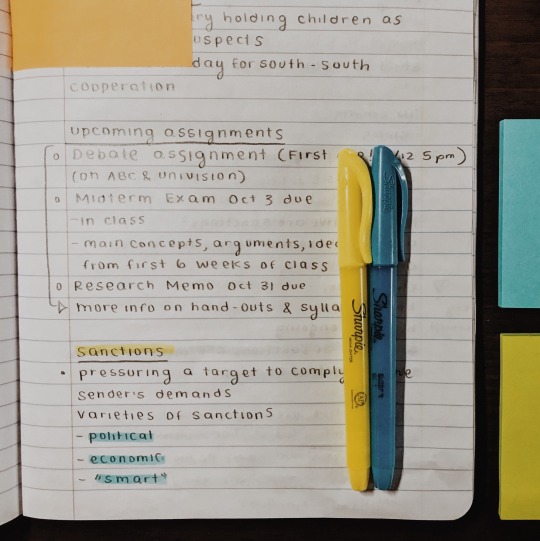 holding children as
day for south-south
cooperation
upcoming assignments
Debate assignment (First /12 5pm)
(on ABC & univision)
Midterm Exam Oct 3 due
-in class
- main concepts, arguments,
from first 6 weeks of class
Research Memo Oct 31 due
more info on hand-outs &
sanctions
• pressuring a target to comply
sender's demands
varieties of sanctions
- political
- economic
- "smart"
Sharpie
Sharpie
Sharpie